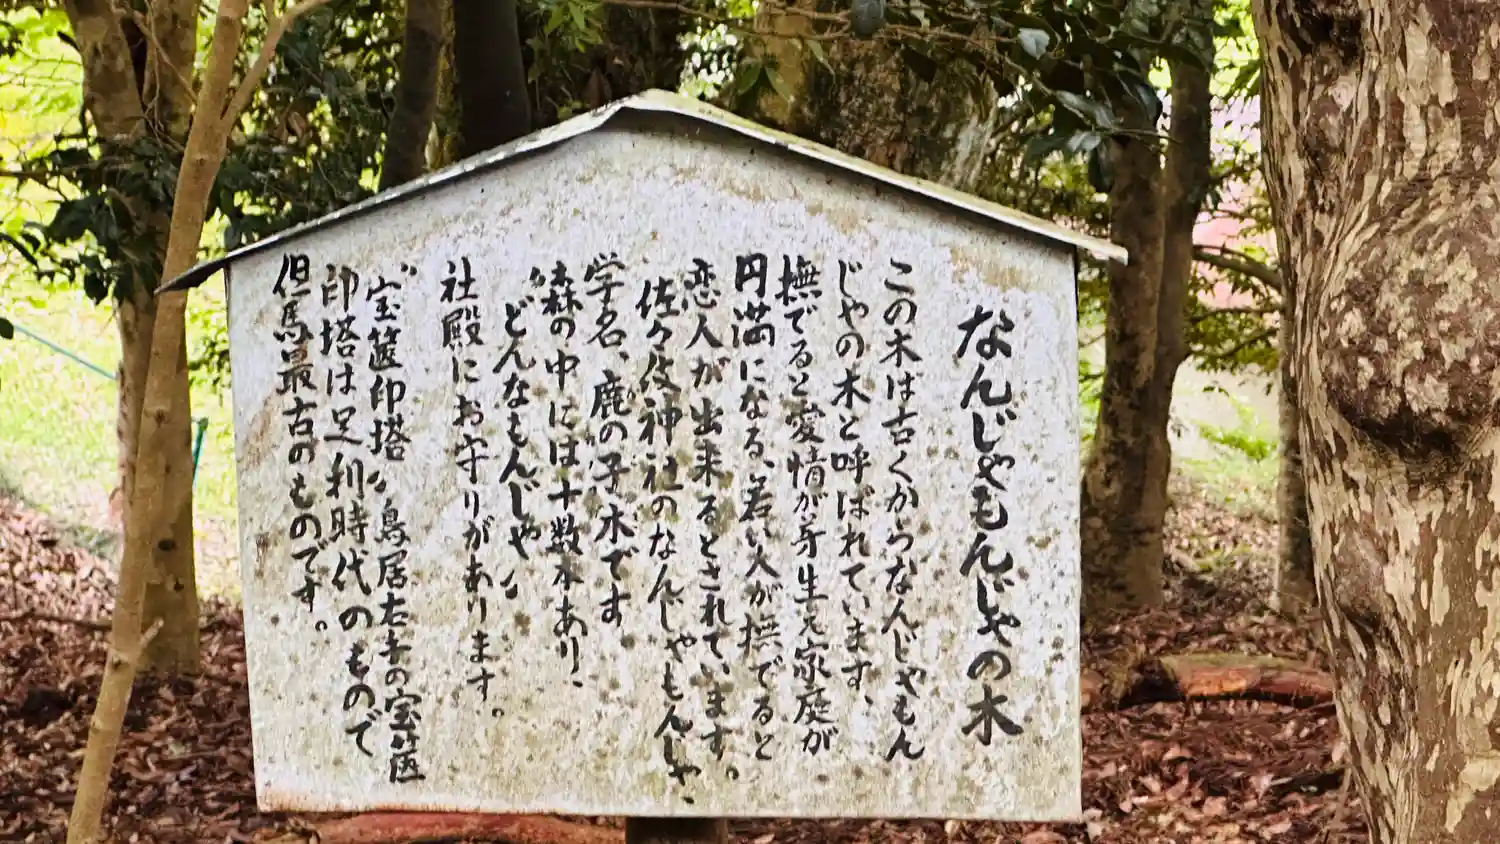 なんじゃもんじゃの木
この木は古くからなんじゃもん
じゃの木と呼ばれています、
撫でると愛情が芽生え家庭が
円満になる、若い人が撫でると
恋人が出来るとされています。
佐々伎神社のなんじゃもんじゃ、
学名、鹿の子木です
森の中には十数本あり、
"どんなもんじゃ"
社殿にお守りがあります。
"宝篋印塔"鳥居右手の宝篋
印塔は足利時代のもので
但馬最古のものです。